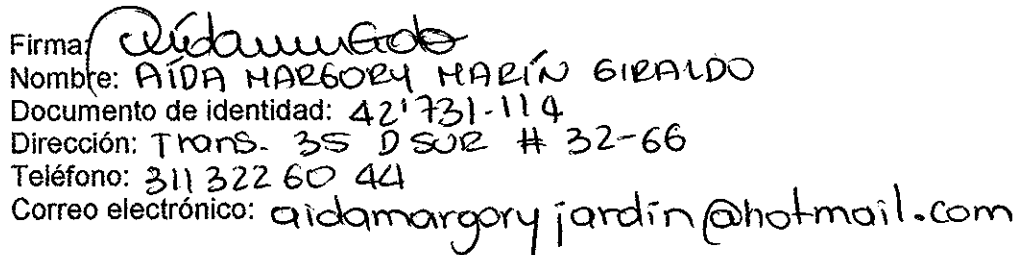 Firma:
Nombre: AÍDA MARGORY MARÍN GIRALDO
Documento de identidad: 42'731-114
Dirección: Trans. 35 D SUR # 32-66
Teléfono: 311 322 60 44
Correo electrónico: aidamargoryjardin@hotmail.com